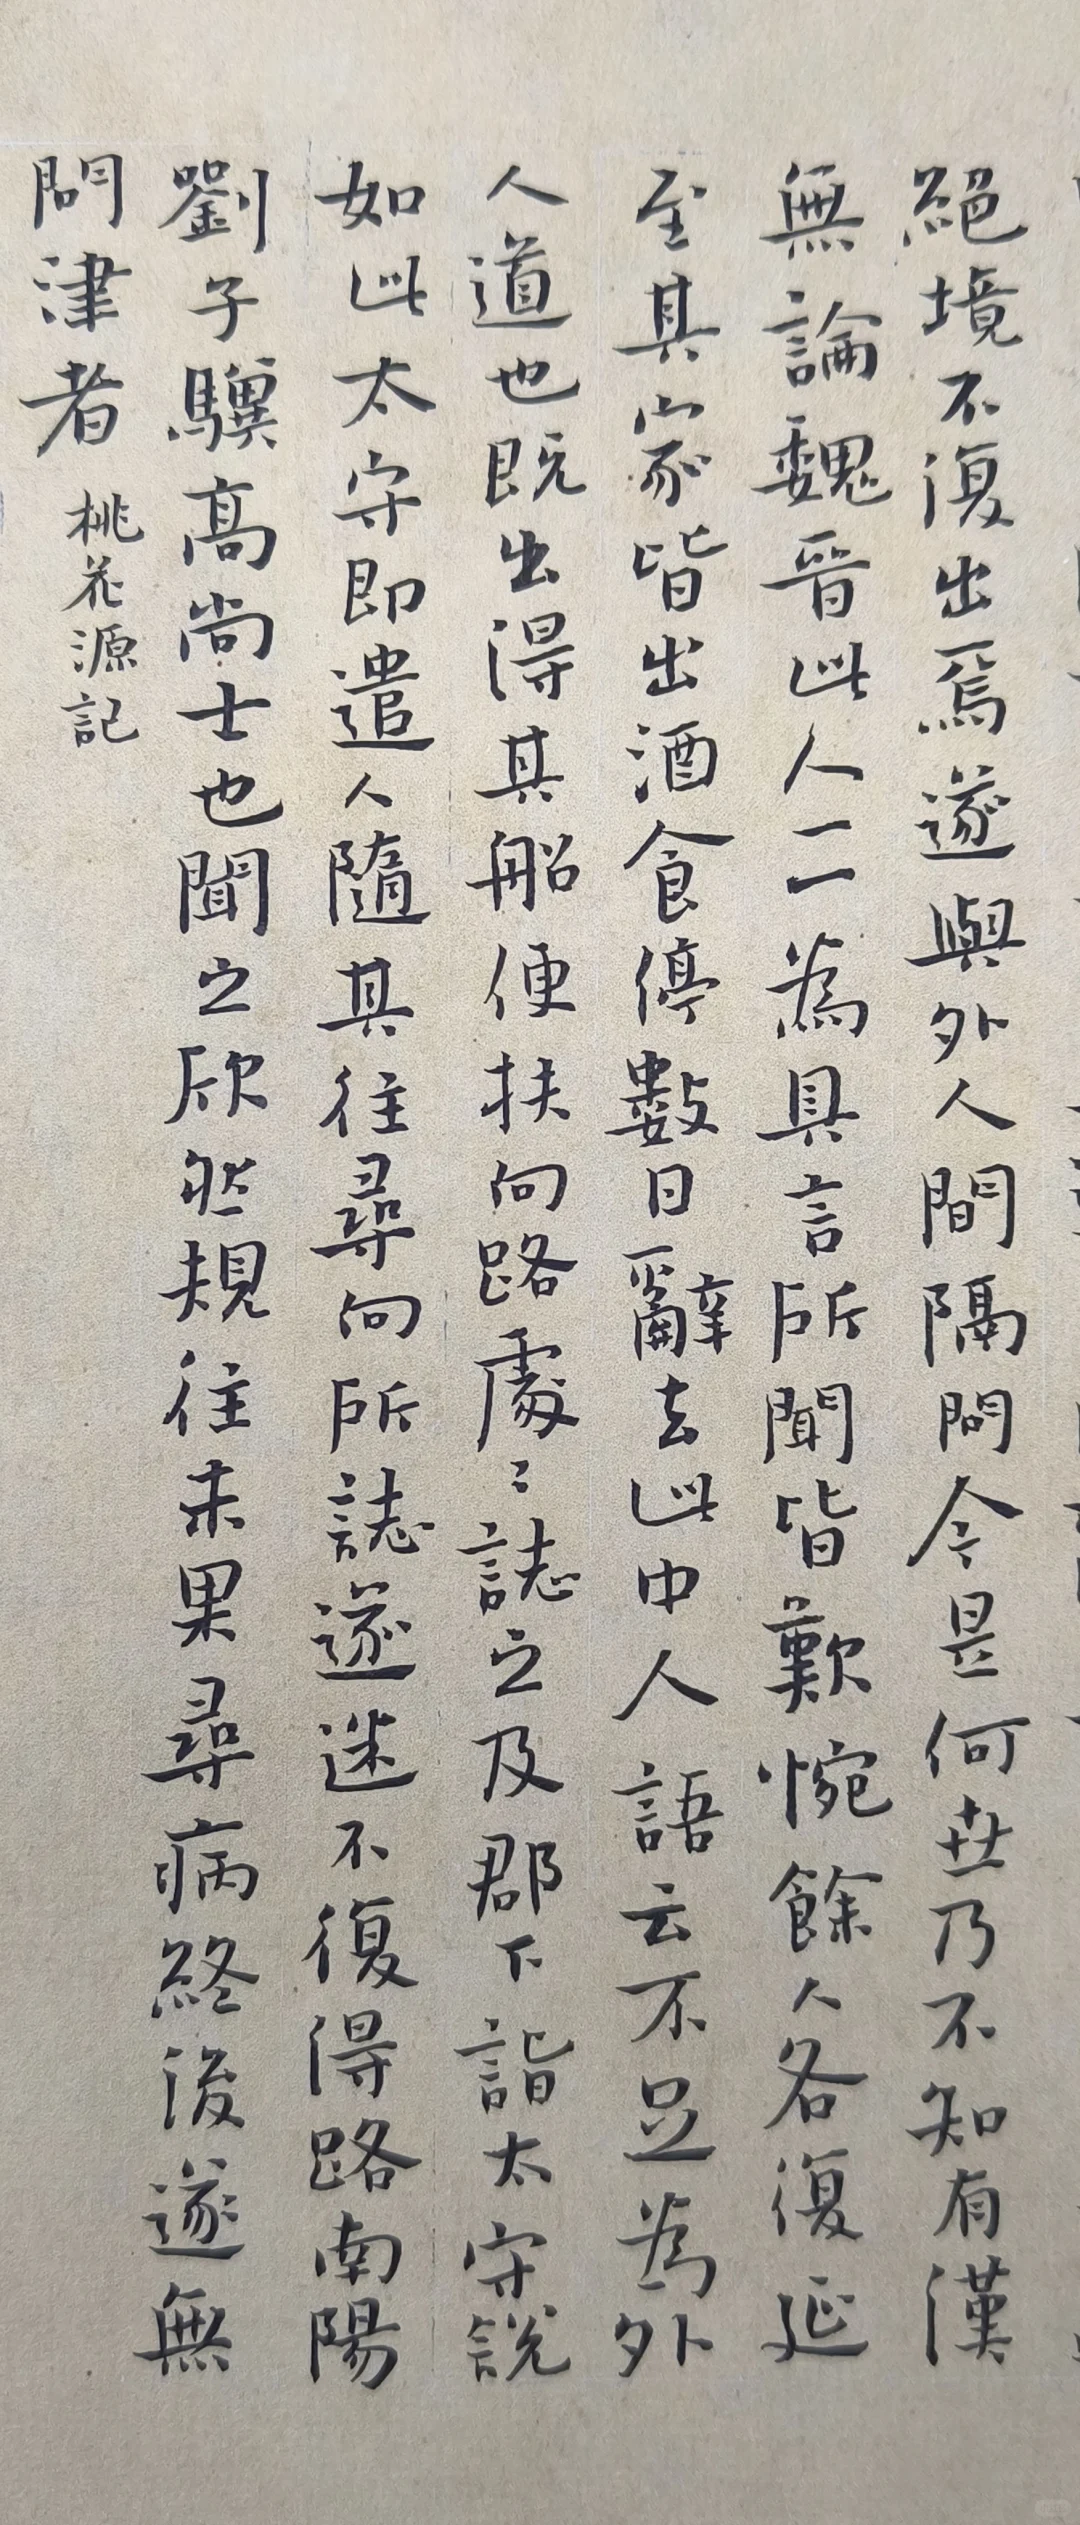 絕境不復出焉遂與外人間隔問今是何世乃不知有漢
無論魏晉此人一一為具言所聞皆歎惋餘人各復延
至其家皆出酒食停數日辭去此中人語云不足為外
人道也既出得其船便扶向路處〻誌之及郡下詣太守說
如此太守即遣人隨其往尋向所誌遂迷不復得路南陽
劉子驥高尚士也聞之欣然規往未果尋病終後遂無
問津者 桃花源記